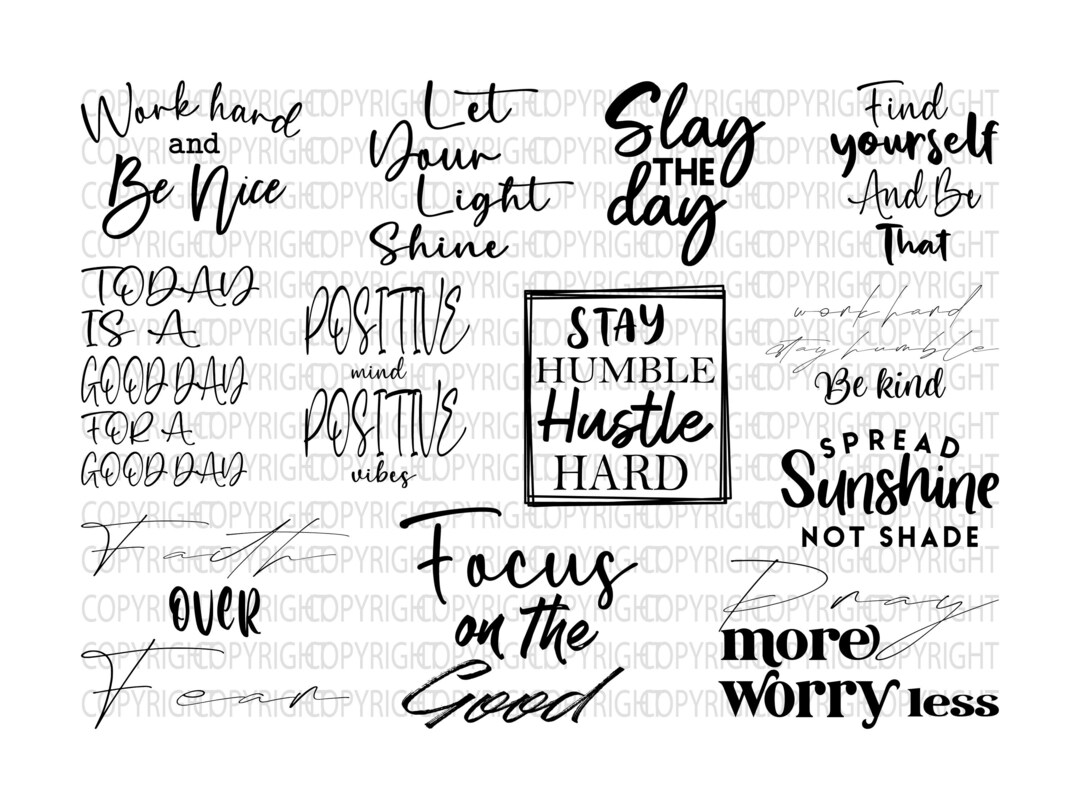 Work hard
and
Be Nice
Let
Your
Light
Shine
Slay
THE
day
Find
yourself
And Be
That
TODAY
IS A
GOOD DAY
FOR A
GOOD DAY
POSITIVE
mind
POSITIVE
vibes
STAY
HUMBLE
Hustle
HARD
work hard
stay humble
Be kind
SPREAD
Sunshine
NOT SHADE
Faith
OVER
Fear
Focus
on the
Good
Pray
more
worry less
COPYRIGHT COPYRIGHT COPYRIGHT COPYRIGHT